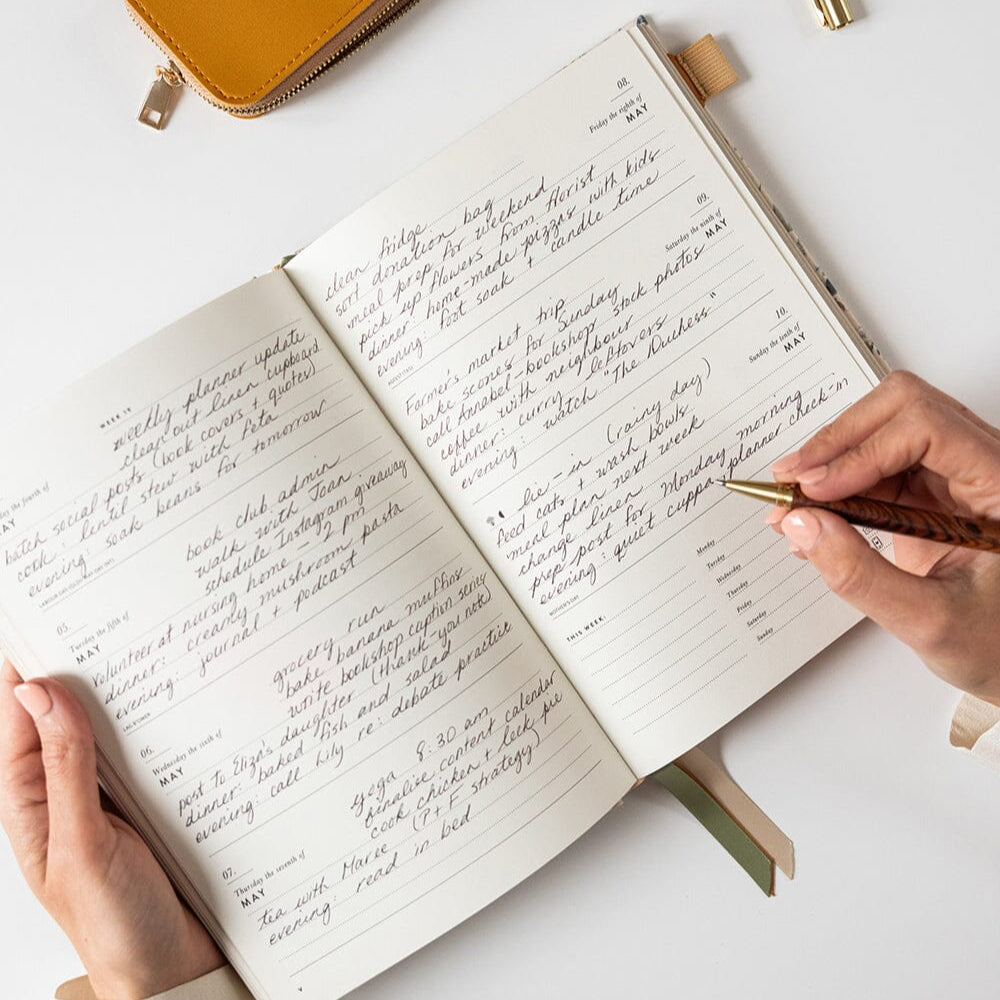 WEEK 19
weekly planner update
clean out linen cupboard
batch social posts (book covers + quotes)
cook: lentil stew with feta
evening: soak beans for tomorrow
fourth of
MAY
05.
Tuesday the fifth of
MAY
book club admin
walk with Joan
schedule Instagram giveaway
volunteer at nursing home - 2 pm
dinner: creamy mushroom pasta
evening: journal + podcast
06.
Wednesday the sixth of
MAY
grocery run
bake banana muffins
write bookshop caption series
post to Eliza's daughter (thank you note)
dinner: baked fish and salad
evening: call Lily re: debate practice
07.
Thursday the seventh of
MAY
yoga 8:30 am
finalise content calendar
cook chicken + leek pie
tea with Maree (P+F strategy)
evening: read in bed
08.
Friday the eighth of
MAY
clean fridge
sort donation bag
meal prep for weekend
pick up flowers from florist
dinner: home-made pizzas with kids
evening: foot soak + candle time
09.
Saturday the ninth of
MAY
Farmers market trip
bake scones for Sunday
call Annabel - bookshop stock photos
coffee with neighbour
dinner: curry leftovers
evening: watch "The Duchess"
10.
Sunday the tenth of
MAY
lie-in (rainy day)
feed cats + wash bowls
meal plan next week
change linen
prep post for Monday morning
evening: quiet cuppa + planner check-in
MOTHER'S DAY
THIS WEEK:
Monday
Tuesday
Wednesday
Thursday
Friday
Saturday
Sunday